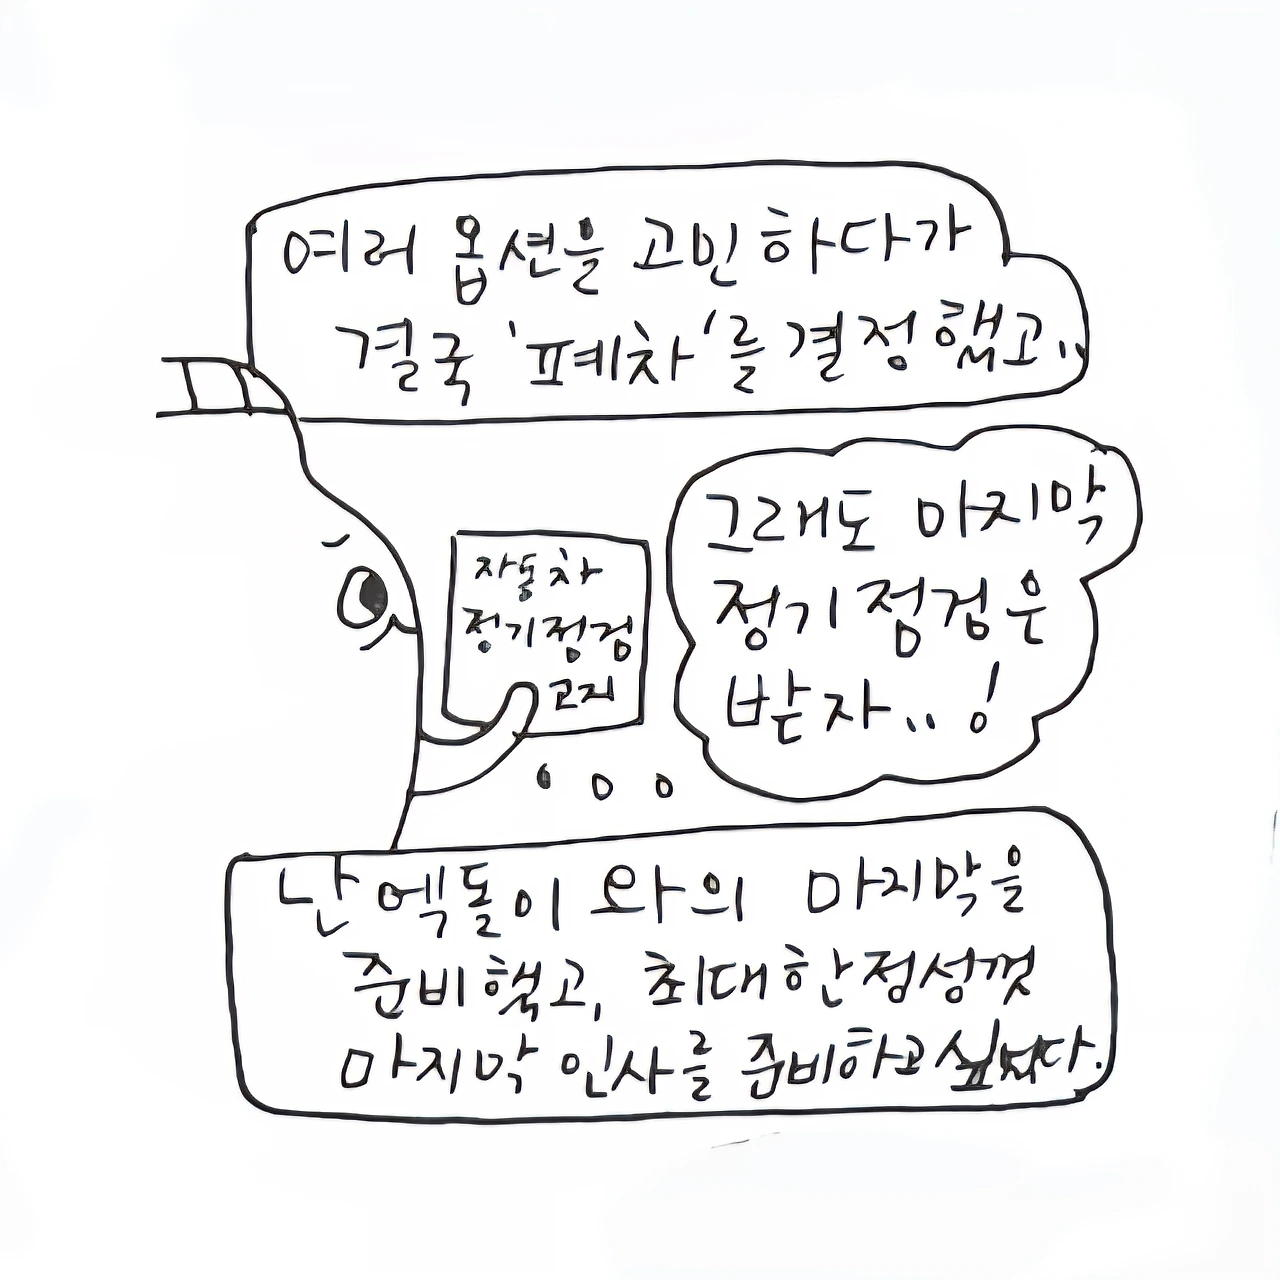 여러 옵션을 고민하다가
결국 '폐차'를 결정했고..
그래도 마지막
정기점검은
받자..!
자동차
정기점검
고지
난 엑돌이와의 마지막을
준비했고, 최대한 정성껏
마지막 인사를 준비하고싶었다.